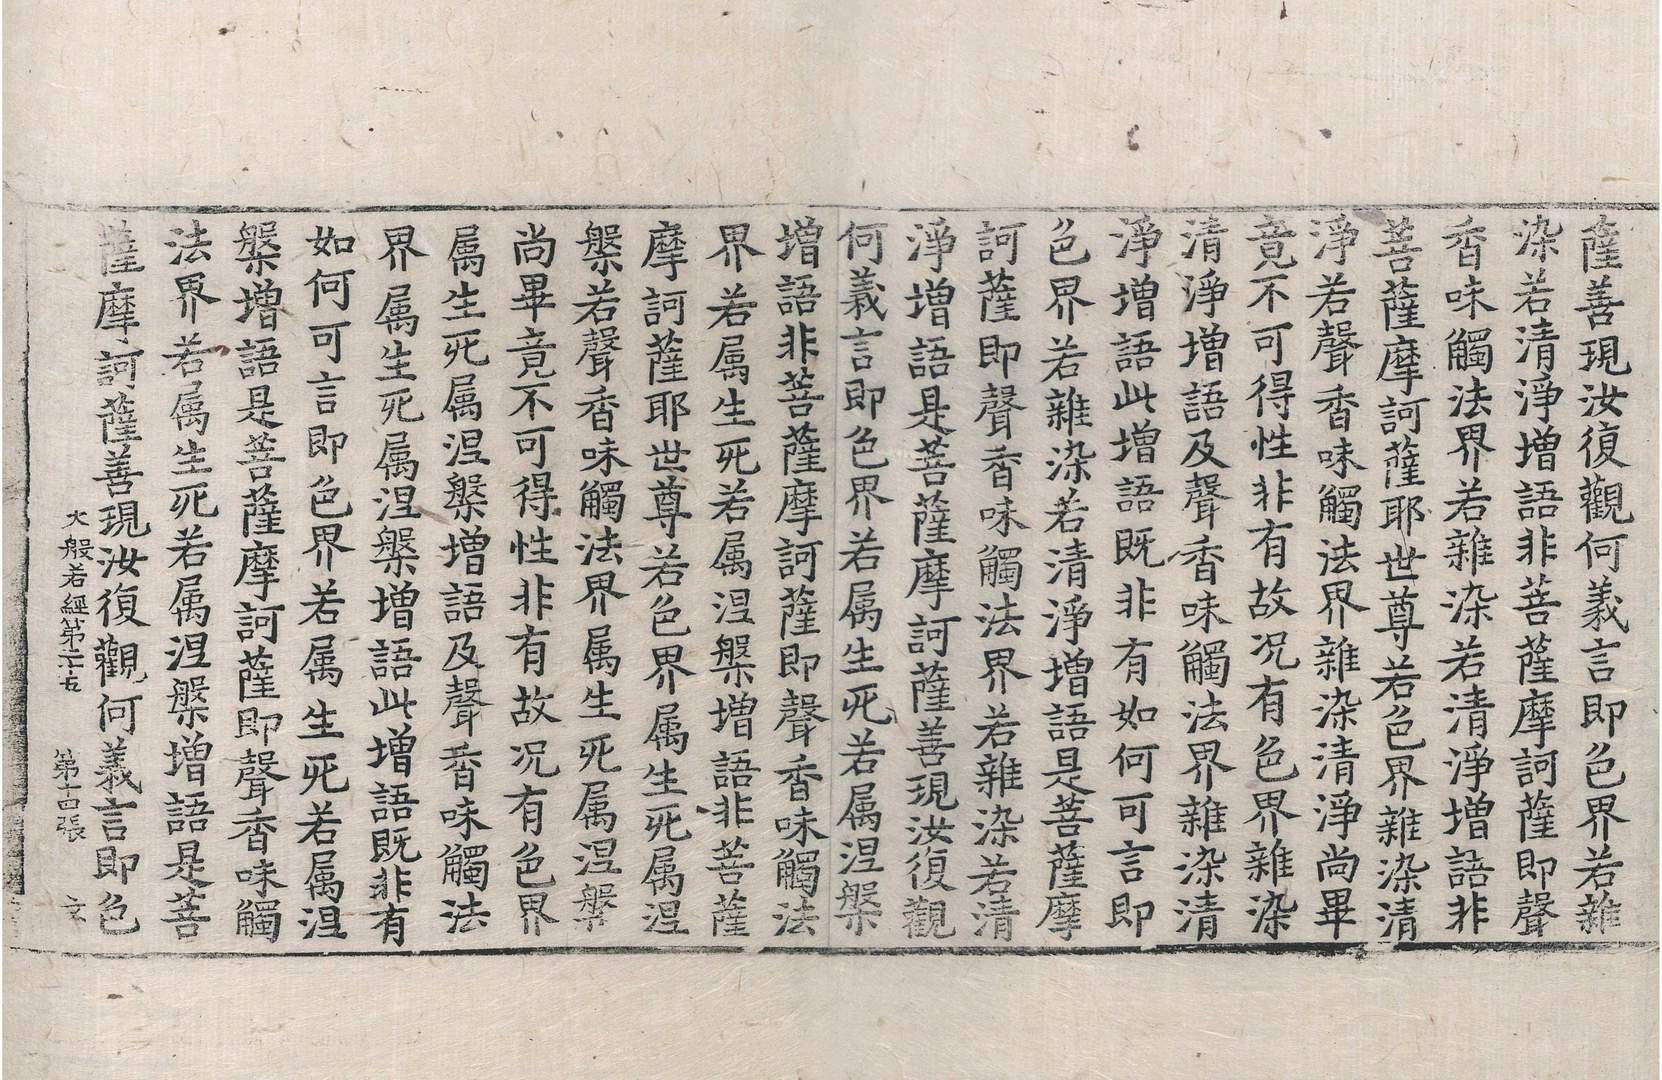 薩善現汝復觀何義言即色界若雜
染若清淨增語非菩薩摩訶薩即聲
香味觸法界若雜染若清淨增語非
菩薩摩訶薩耶世尊若色界雜染清
淨若聲香味觸法界雜染清淨尚畢
竟不可得性非有故况有色界雜染
清淨增語及聲香味觸法界雜染清
淨增語此增語既非有如何可言即
色界若雜染若清淨增語是菩薩摩
訶薩即聲香味觸法界若雜染若清
淨增語是菩薩摩訶薩善現汝復觀
何義言即色界若属生死若属涅槃
增語非菩薩摩訶薩即聲香味觸法
界若属生死若属涅槃增語非菩薩
摩訶薩耶世尊若色界属生死属涅
槃若聲香味觸法界属生死属涅槃
尚畢竟不可得性非有故况有色界
属生死属涅槃增語及聲香味觸法
界属生死属涅槃增語此增語既非有
如何可言即色界若属生死若属涅
槃增語是菩薩摩訶薩即聲香味觸
法界若属生死若属涅槃增語是菩
薩摩訶薩善現汝復觀何義言即色
大般若經第二十五 第十四張